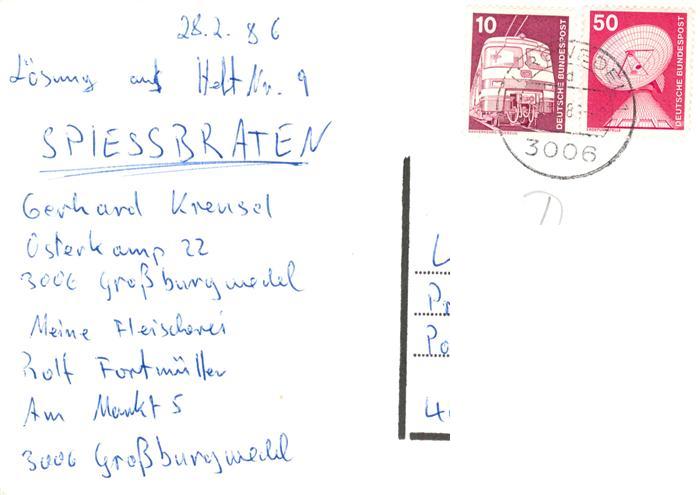 28.2.86
Lösung aus Heft Nr. 9
SPIESSBRATEN
Gerhard Kreusel
Osterkamp 22
3006 Großburgwedel
Meine Fleischerei
Rolf Fortmüller
Am Markt 5
3006 Großburgwedel
10
DEUTSCHE BUNDESPOST
50
DEUTSCHE BUNDESPOST
3006
L
Pr
Po
4